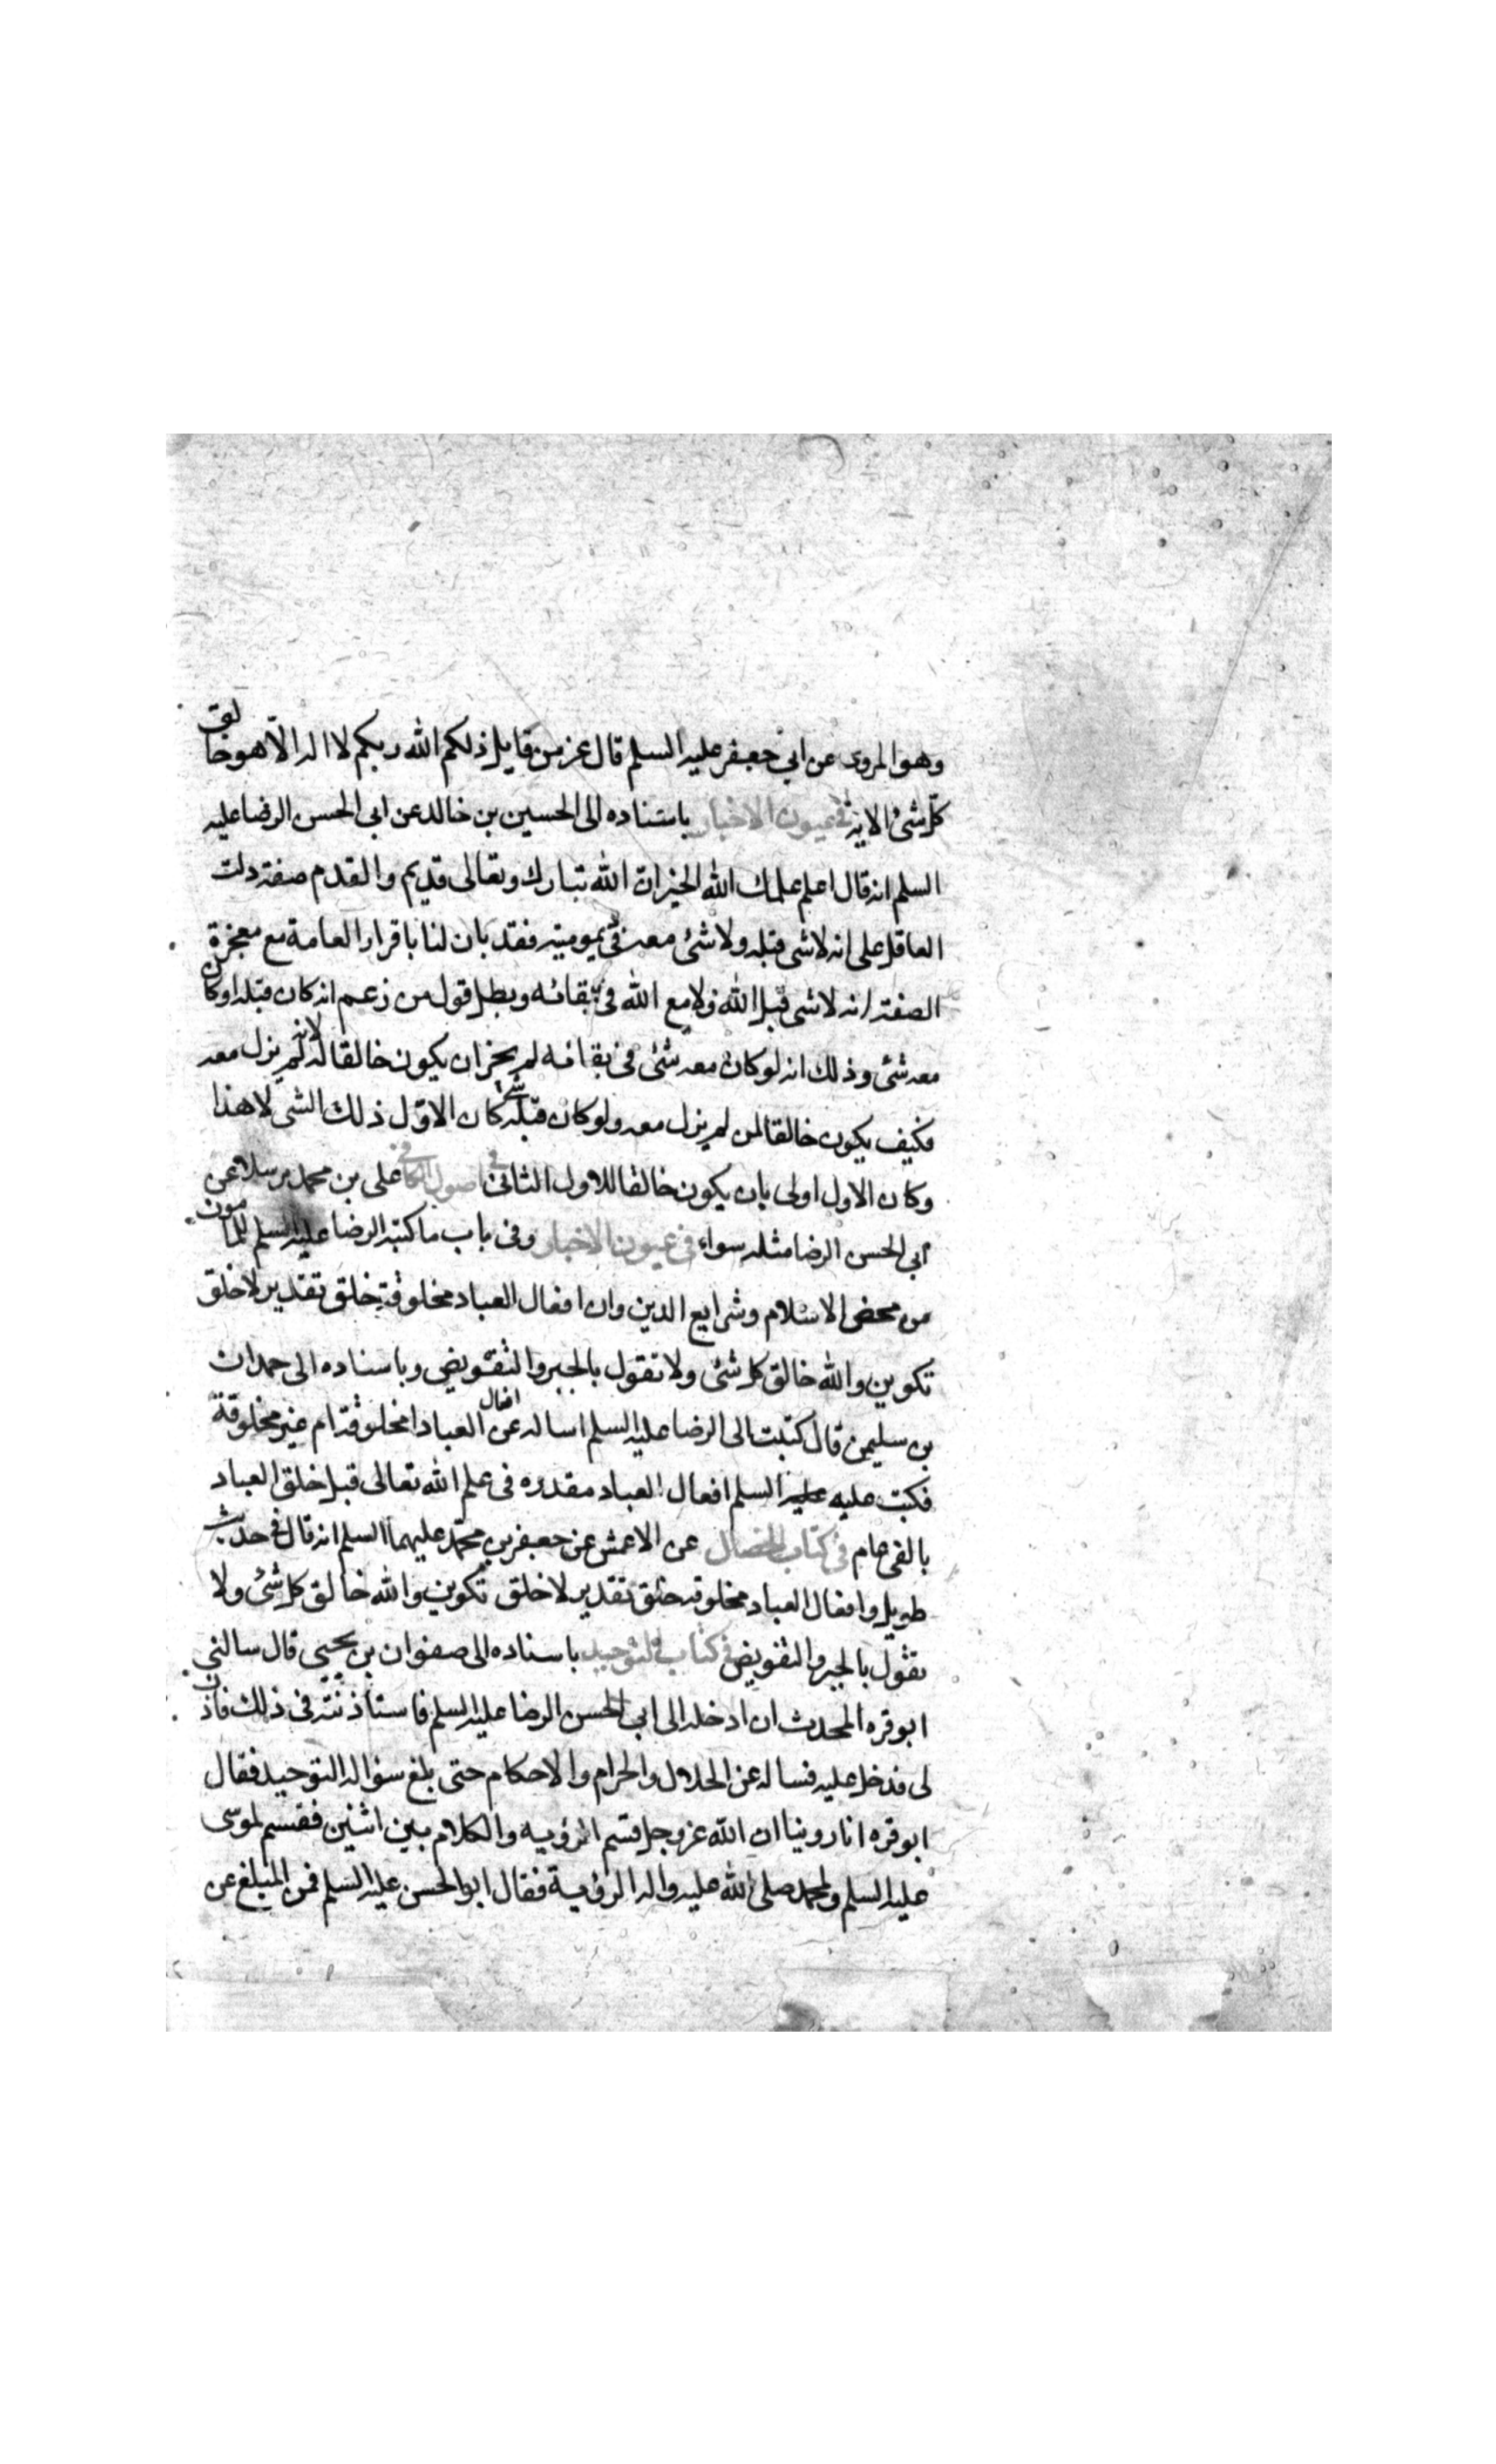 وهو المروى عن ابي جعفر عليه السلم قال عز من قايل ذلكم الله ربكم لا اله الا هو خالق
كل شئ الاية في عيون الاخبار باسناده الى الحسين بن خالد عن ابي الحسن الرضا عليه
السلم انه قال اعلم علمك الله الخير ان الله تبارك وتعالى قديم والقدم صفة دلت
العاقل على انه لا شى قبله ولا شئ معه في ديموميته فقد بان لنا باقرار العامة مع معجزة
الصفة انه لا شى قبل الله ولا مع الله في بقائه وبطل قول من زعم انه كان قبله او كان
معه شئ وذلك انه لو كان معه شئ في بقائه لم يجز ان يكون خالقا له لانه لم يزل معه
فكيف يكون خالقا لمن لم يزل معه ولو كان قبله شئ كان الاول ذلك الشى لا هذا
وكان الاول اولى بان يكون خالقا للاول الثاني في اصول الكافي على بن محمد مرسلا عن
ابي الحسن الرضا مثله سواء في عيون الاخبار وفي باب ما كتبه الرضا عليه السلم للمامون
من محض الاسلام وشرايع الدين وان افعال العباد مخلوقة خلق تقدير لا خلق
تكوين والله خالق كل شئ ولا تقول بالجبر والتفويض وباسناده الى حمدان
بن سليمن قال كتبت الى الرضا عليه السلم اساله عن افعال العباد امخلوقة ام غير مخلوقة
فكتب عليه عليه السلم افعال العباد مقدره في علم الله تعالى قبل خلق العباد
بالفى عام في كتاب الخصال عن الاعمش عن جعفر بن محمد عليهما السلم انه قال في حديث
طويل وافعال العباد مخلوقه خلق تقدير لا خلق تكوين والله خالق كل شئ ولا
نقول بالجبر والتفويض في كتاب التوحيد باسناده الى صفوان بن يحيى قال سالني
ابو قره المحدث ان ادخله الى ابي الحسن الرضا عليه السلم فاستاذنته في ذلك فاذن
لى فدخل عليه فساله عن الحلال والحرام والاحكام حتى بلغ سؤاله التوحيد فقال
ابو قره انا روينا ان الله عز وجل قسم الرؤيه والكلام بين اثنين فقسم لموسى
عليه السلم ولمحمد صلى الله عليه واله الرؤية فقال ابو الحسن عليه السلم فمن المبلغ عن